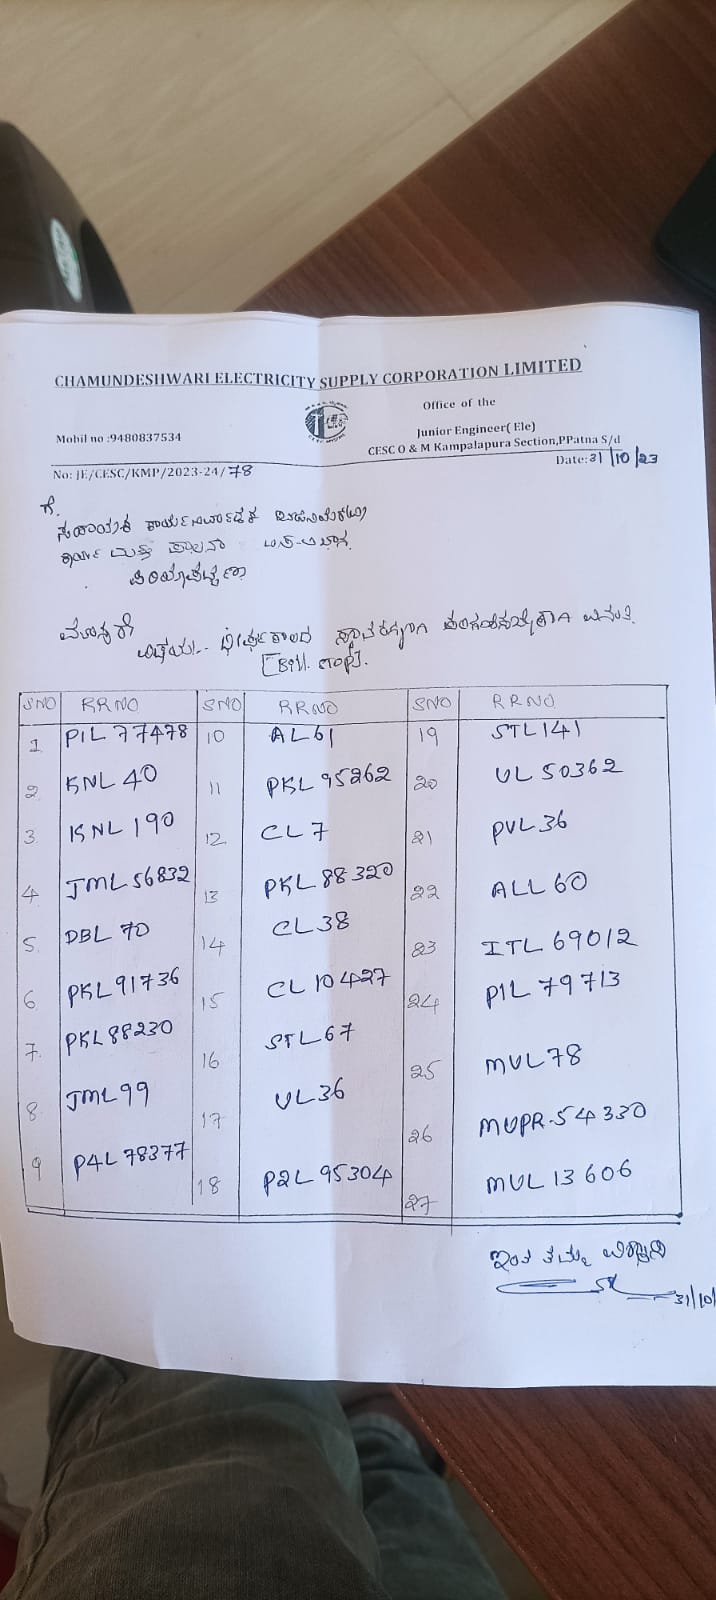 CHAMUNDESHWARI ELECTRICITY SUPPLY CORPORATION LIMITED
Office of the
Mobil no :9480837534
Junior Engineer( Ele)
CESC O & M Kampalapura Section,PPatna S/d
No: JE/CESC/KMP/2023-24/78
Date:31/10/23
ಗೆ.
ಸಹಾಯಕ ಕಾರ್ಯನಿರ್ವಾಹಕ
ಕಾರ್ಯ ಮತ್ತು ಪಾಲನಾ ಉಪ-ವಿಭಾಗ
ಪಿರಿಯಾಪಟ್ಟಣ
ಮಾನ್ಯರೇ
ವಿಷಯ:- ಧೀರ್ಘಕಾಲದ ಸ್ಥಾವರಗಳಿಗೆ
[Bill stop].
SNO RRNO SNO RRNO SNO RRNO
1 P1L 77478 10 AL61 19 STL141
2 KNL 40 11 PKL 95262 20 UL 50362
3 KNL 190 12 CL 7 21 PVL36
4 JML 56832 13 PKL 88320 22 ALL 60
5 DBL 70 14 CL38 23 ITL 69012
6 PKL91736 15 CL 10427 24 P1L 79713
7 PKL88230 16 STL67 25 MUL78
8 JML99 17 UL36 26 MUPR-54330
9 P4L 78377 18 P2L 95304 27 MUL 13606
ಇಂತಿ ತಮ್ಮ ವಿಶ್ವಾಸಿ
31/10/